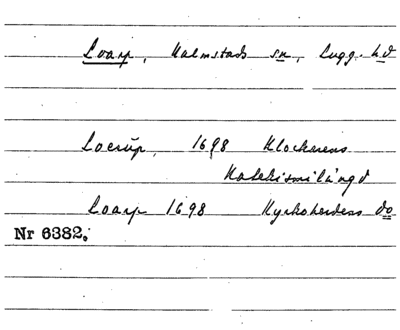 Loarp, Halmstads sn, Lugg. hd
Loerup, 1698 Klockarens
Katekismilängd
Loarp 1698 Kyrkoherdens do
Nr 6382.